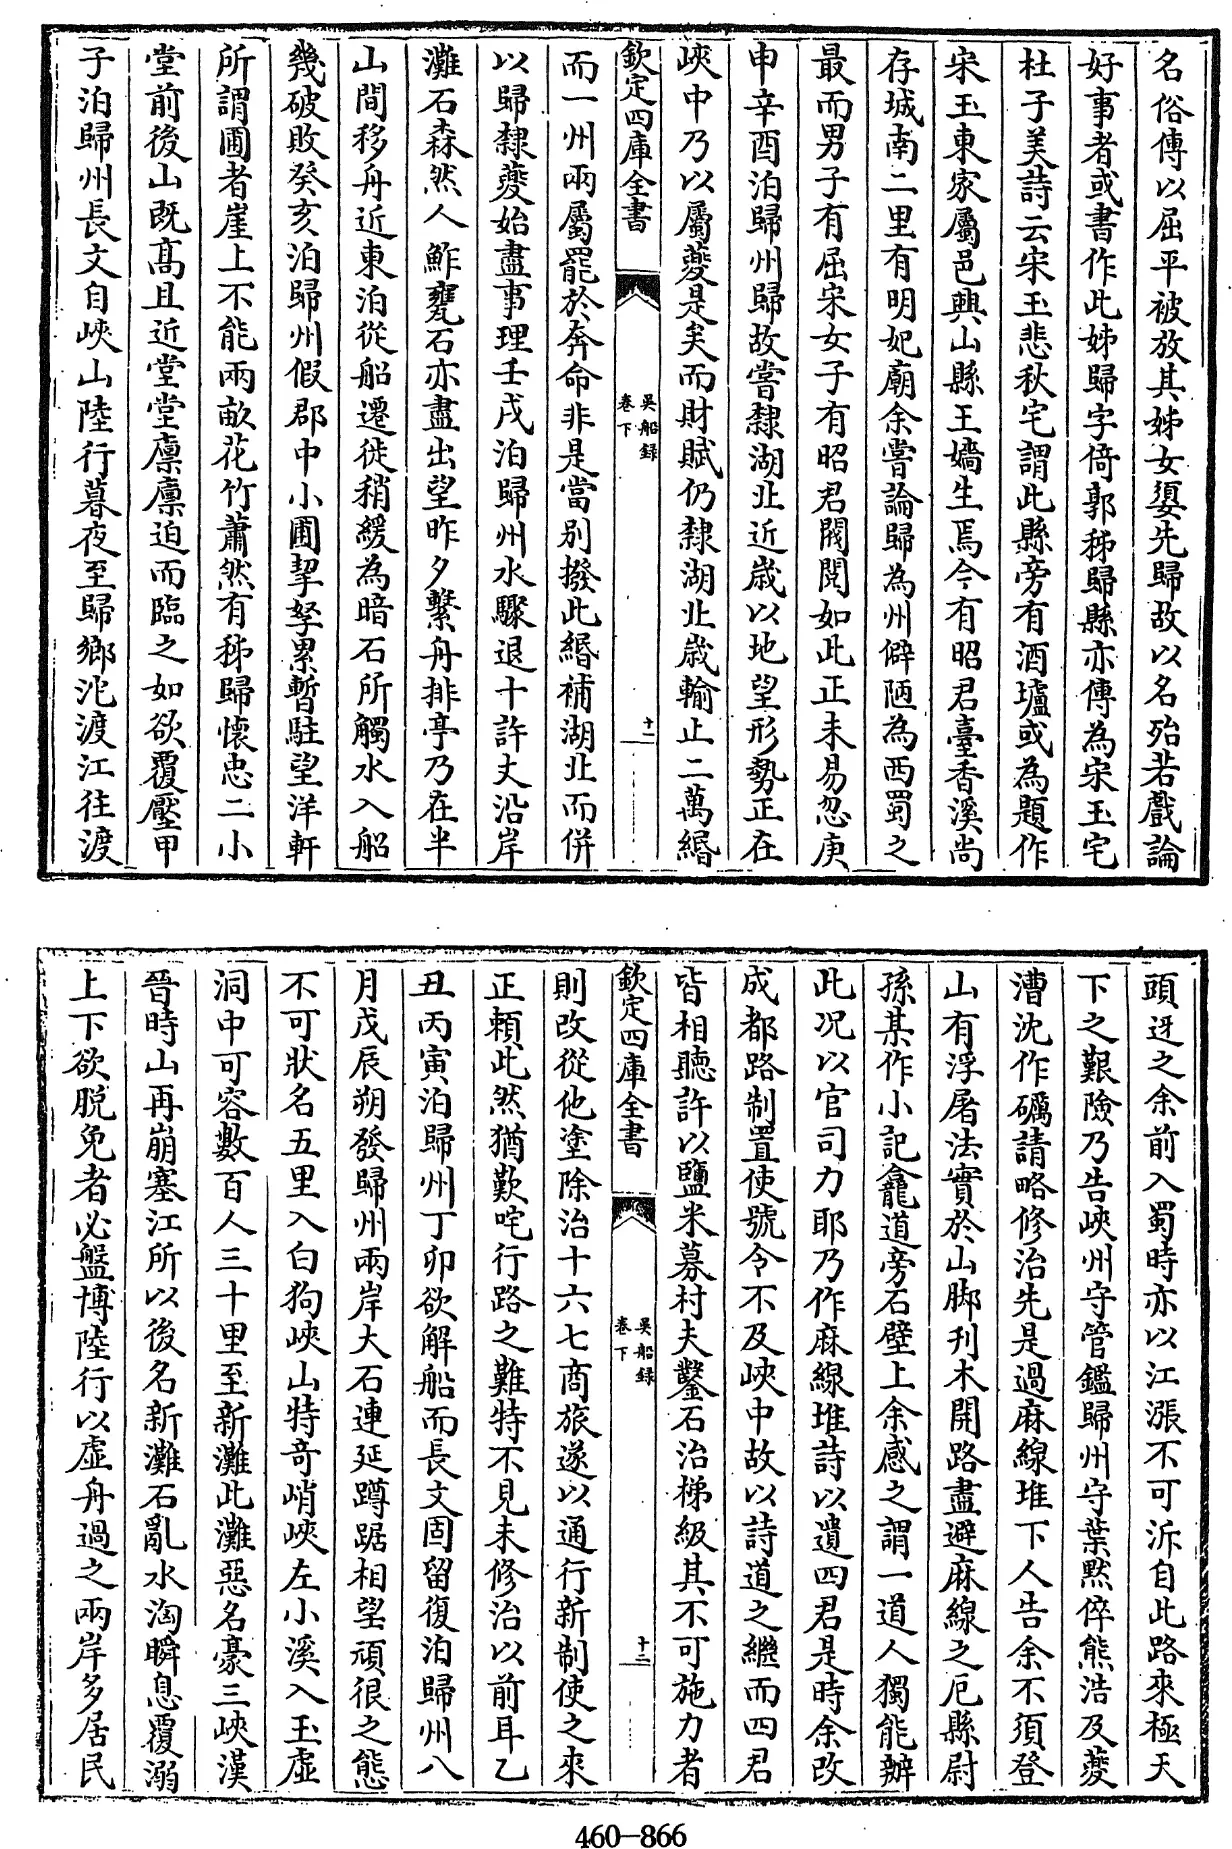 名俗傳以屈平被放其姊女嬃先歸故以名殆若戲論
好事者或書作此姊歸字倚郭秭歸縣亦傳為宋玉宅
杜子美詩云宋玉悲秋宅謂此縣旁有酒壚或為題作
宋玉東家屬邑興山縣王嬙生焉今有昭君臺香溪尚
存城南二里有明妃廟余嘗論歸為州僻陋為西蜀之
最而男子有屈宋女子有昭君閥閱如此正未易忽庚
申辛酉泊歸州歸故嘗隸湖北近歲以地望形勢正在
峽中乃以屬夔是矣而財賦仍隸湖北歲輸止二萬緡
欽定四庫全書
吳船録
卷下
十二
而一州兩屬罷於奔命非是當別撥此緡補湖北而併
以歸隸夔始盡事理壬戌泊歸州水驟退十許丈沿岸
灘石森然人鮓甕石亦盡出望昨夕繫舟排亭乃在半
山間移舟近東泊從船遷徙稍緩為暗石所觸水入船
幾破敗癸亥泊歸州假郡中小圃挈孥累暫駐望洋軒
所謂圃者崖上不能兩畝花竹蕭然有秭歸懷忠二小
堂前後山既髙且近堂堂廪廪迫而臨之如欲覆壓甲
子泊歸州長文自峽山陸行暮夜至歸鄉沱渡江往渡
頭迓之余前入蜀時亦以江漲不可泝自此路來極天
下之艱險乃告峽州守管鑑歸州守葉黙倅熊浩及夔
漕沈作礪請略修治先是過麻線堆下人告余不須登
山有浮屠法實於山脚刋木開路盡避麻線之厄縣尉
孫某作小記龕道旁石壁上余感之謂一道人獨能辦
此况以官司力耶乃作麻線堆詩以遺四君是時余改
成都路制置使號令不及峽中故以詩道之繼而四君
皆相聽許以鹽米募村夫鑿石治梯級其不可施力者
欽定四庫全書
吳船録
卷下
十三
則改從他塗除治十六七商旅遂以通行新制使之來
正頼此然猶歎咤行路之難特不見未修治以前耳乙
丑丙寅泊歸州丁卯欲解船而長文固留復泊歸州八
月戊辰朔發歸州兩岸大石連延蹲踞相望頑很之態
不可狀名五里入白狗峽山特奇峭峽左小溪入玉虛
洞中可容數百人三十里至新灘此灘惡名豪三峽漢
晉時山再崩塞江所以後名新灘石亂水洶瞬息覆溺
上下欲脱免者必盤博陸行以虛舟過之兩岸多居民
460-866